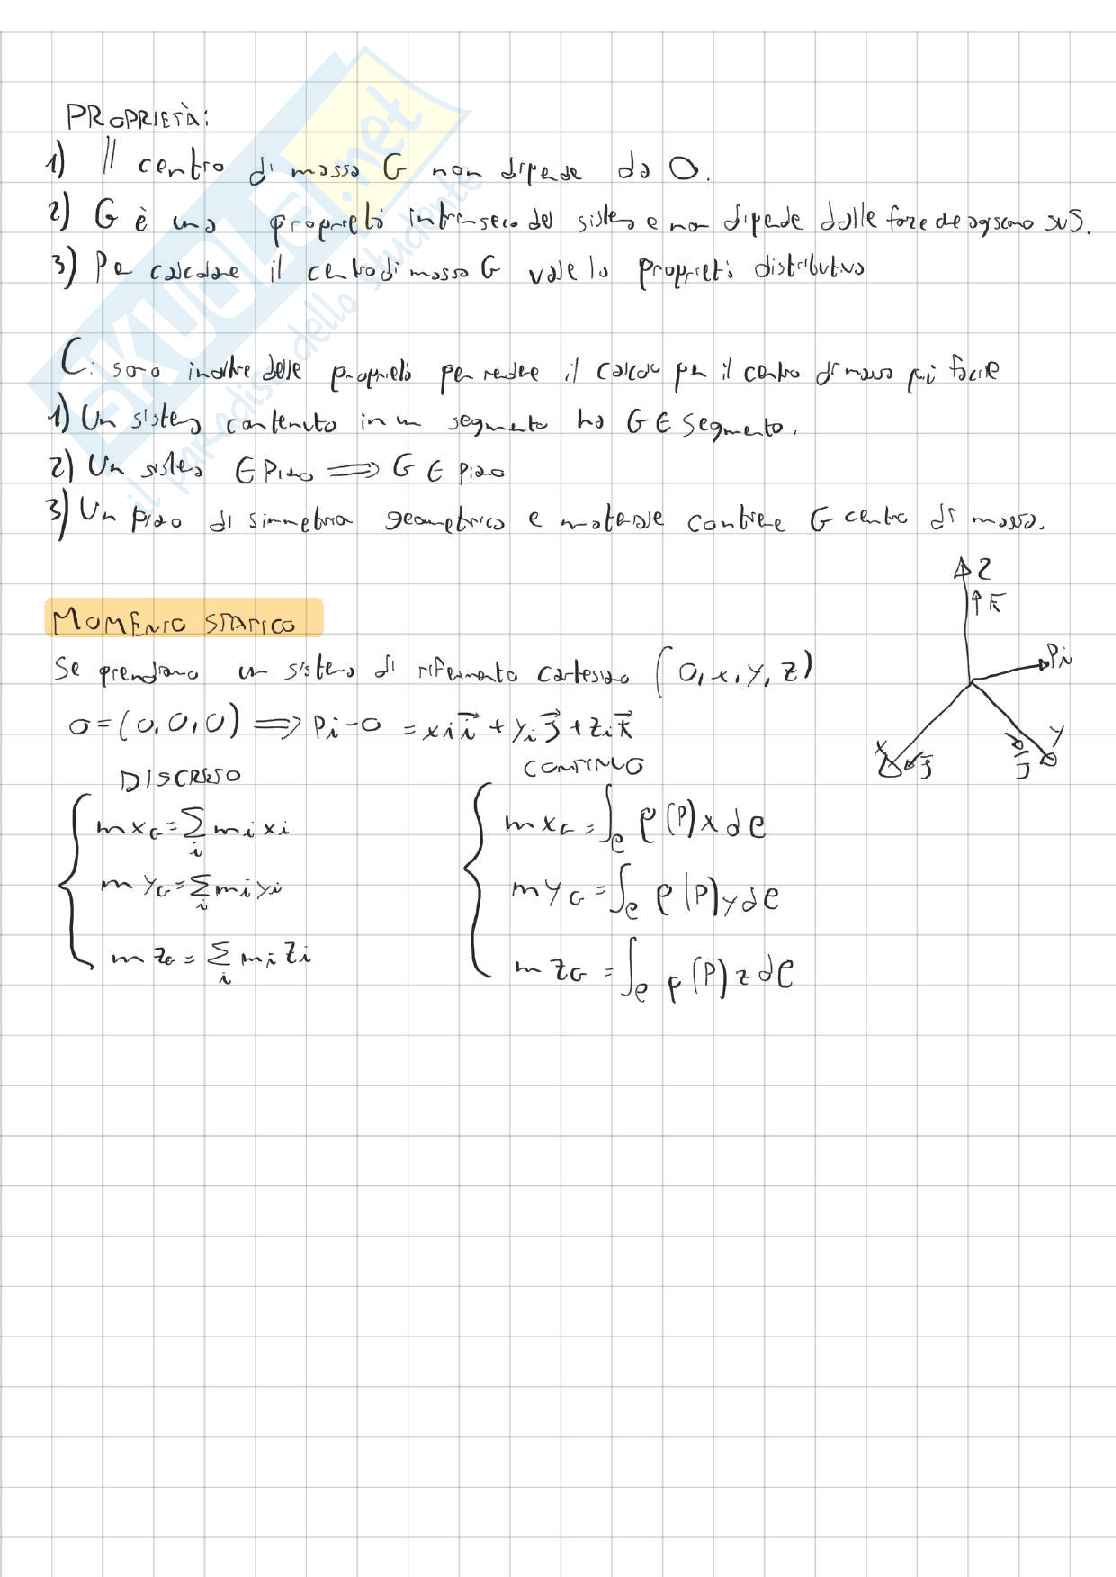 PROPRIETÀ:
1) Il centro di massa G non dipende da O.
2) G è una proprietà intrinseca del sistema e non dipende dalle forze che agiscono su S.
3) Per calcolare il centro di massa G vale la proprietà distributiva
Ci sono inoltre delle proprietà per rendere il calcolo per il centro di massa più facile
1) Un sistema contenuto in un segmento ha G ∈ Segmento.
2) Un sistema ∈ Piano ⟹ G ∈ piano
3) Un piano di simmetria geometrico e materiale contiene G centro di massa.
Z
k
Pi
MOMENTO STATICO
Se prendiamo un sistema di riferimento cartesiano (O, x, y, z)
O=(0,0,0) ⟹ Pi-O = xi i⃗ + yi j⃗ + zi k⃗
x
y
j
DISCRETO
CONTINUO
m xG = Σi mi xi
m xG = ∫e ρ(P) x de
m yG = Σi mi yi
m yG = ∫e ρ(P) y de
m zG = Σi mi zi
m zG = ∫e ρ(P) z de
SKUOLA.net
il paradiso dello studente